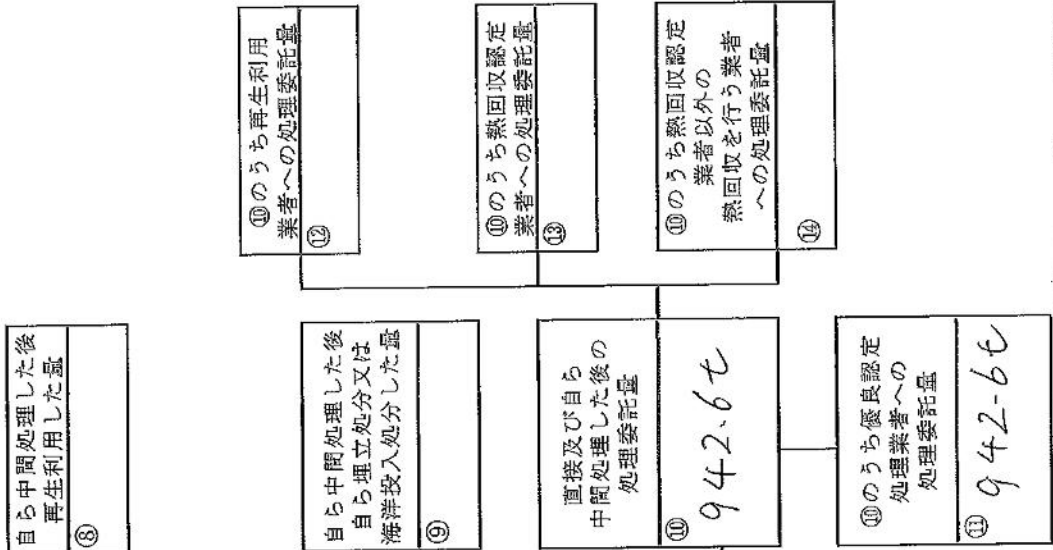 自ら中間処理した後
再生利用した量
⑧
自ら中間処理した後
自ら埋立処分又は
海洋投入処分した量
⑨
直接及び自ら
中間処理した後の
処理委託量
⑩
942.6t
⑩のうち優良認定
処理業者への
処理委託量
⑪
942.6t
⑩のうち再生利用
業者への処理委託量
⑫
⑩のうち熱回収認定
業者への処理委託量
⑬
⑩のうち熱回収認定
業者以外の
熱回収を行う業者
への処理委託量
⑭